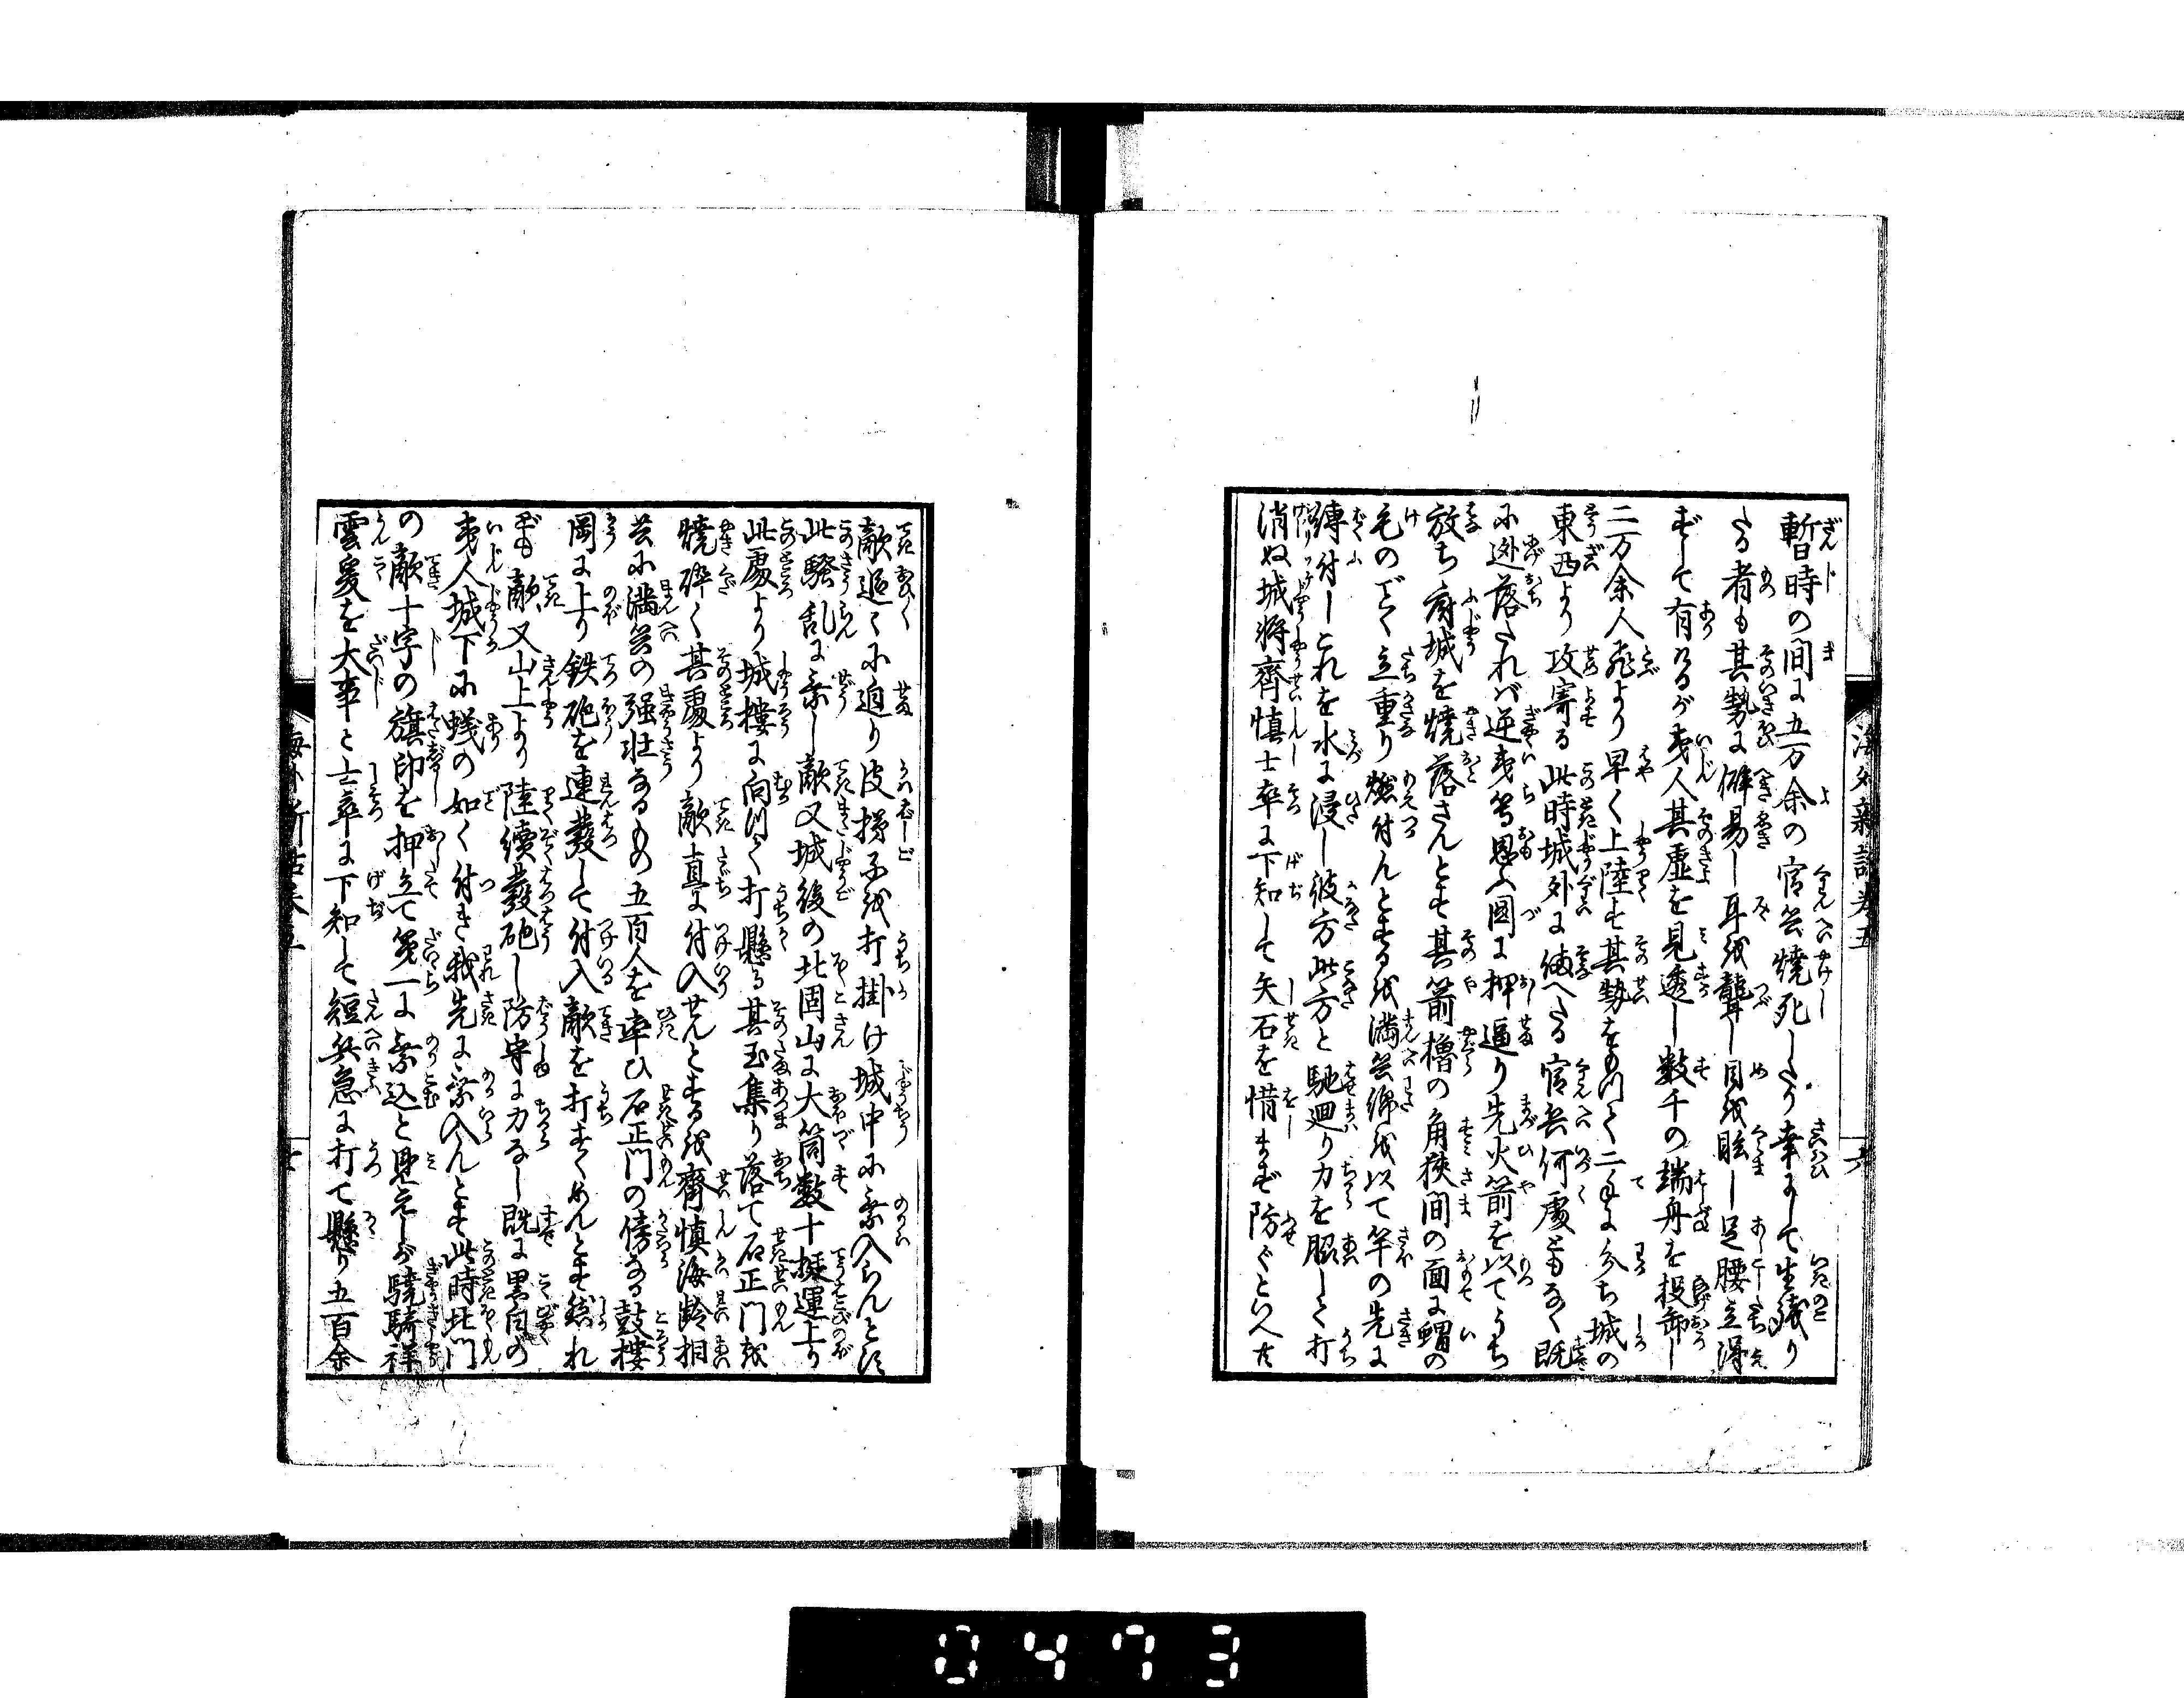 海外新話巻五
六
暫時の間に五万余の官兵燒死したり幸にして生殘り
たる者も其勢に僻易し耳を聾し目を眩し足腰立得
ずして有けるが夷人其虚を見透し数千の端舟を投卸し
二万余人飛より早く上陸す其勢をわけて二手に分ち城の
東西より攻寄る此時城外に備へたる官兵何處ともなく既
に逃落たれば逆夷等思ふ圖に押逼り先火箭を以てうち
放ち府城を燒落さんとす其箭櫓の角狹間の面に蝟の
毛のごとく立重り燃付んとするを満兵綿を以て竿の先に
縛付しこれを水に浸し彼方此方と馳廻り力を脇して打
消ぬ城將齊慎士卒に下知して矢石を惜まず防ぐといへ共
敵追々に迫り皮梯子を打掛け城中に乘入らんとす
此騒乱に乗し敵又城後の北固山に大筒数十挺運上り
此處より城樓に向ひて打懸る其玉集り落て石正門を
燒砕く其處より敵直に付入せんとするを齊慎海齢相
共に満兵の强壮なるもの五百人を率ひ石正門の傍なる鼓樓
岡に上り鉄砲を連發して付入敵を打すくめんとす然れ
ども敵又山上より陸續發砲し防守に力なし既に黒白の
夷人城下に蟻の如く付き我先に乗入んとす此時北門
の敵十字の旗印を押立て第一に乘込と見えしが驍騎祥
雲爰を大事と士卒に下知して短兵急に打て懸り五百余
海外新話巻五
七
0473